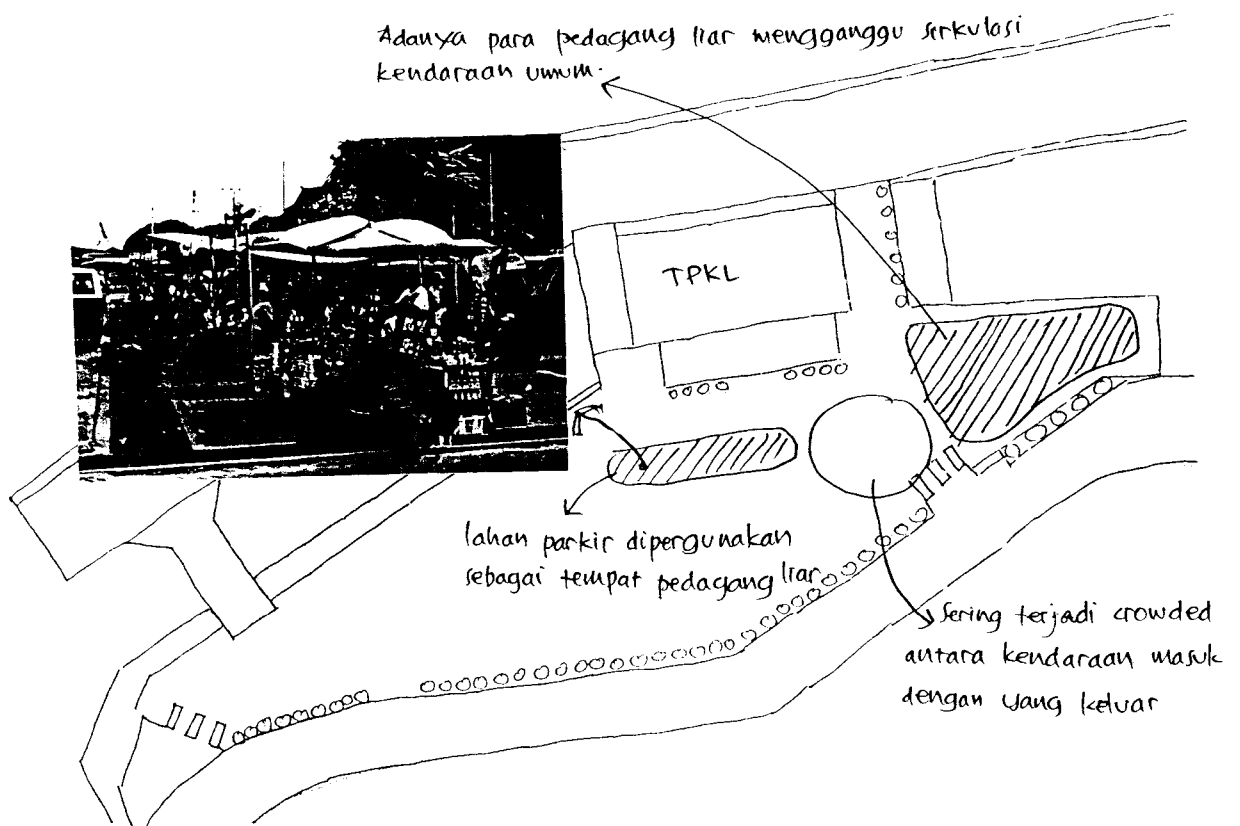 Adanya para pedagang liar mengganggu sirkulasi
kendaraan umum.
TPKL
lahan parkir dipergunakan
sebagai tempat pedagang liar
Sering terjadi crowded
antara kendaraan masuk
dengan yang keluar